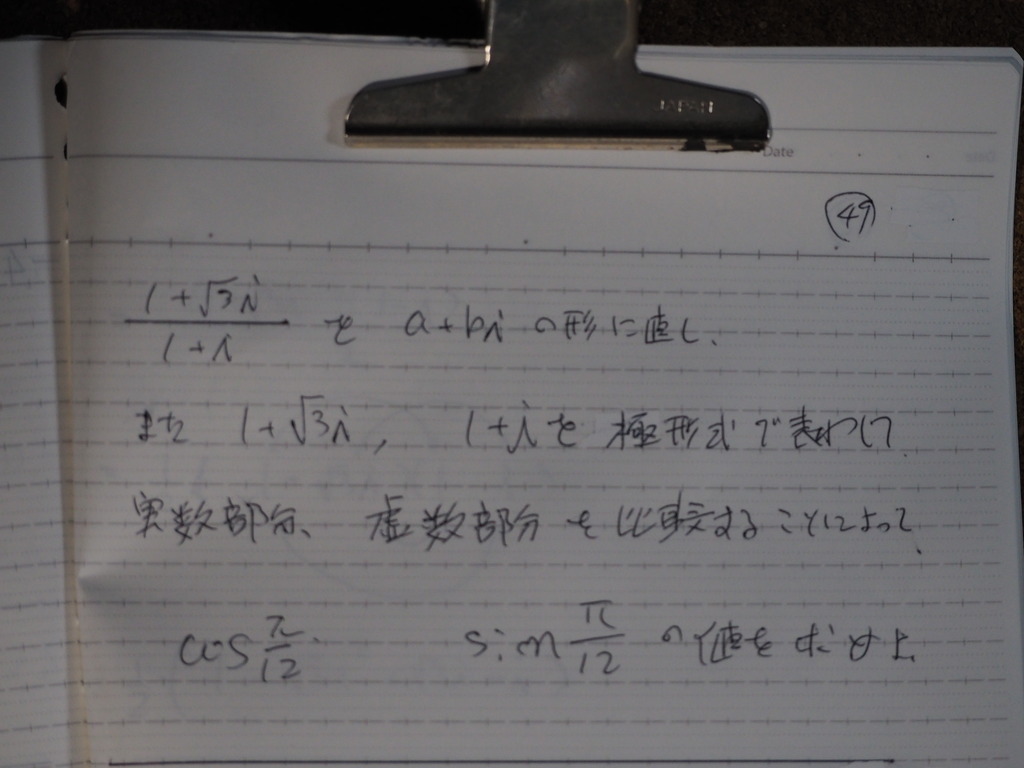 JAPAN
Date
49
(1+√3i)/(1+i) を a+bi の形に直し、
また 1+√3i, 1+iを極形式で表わして
実数部分、虚数部分を比較することによって、
cos π/12 sin π/12 の値を求めよ。